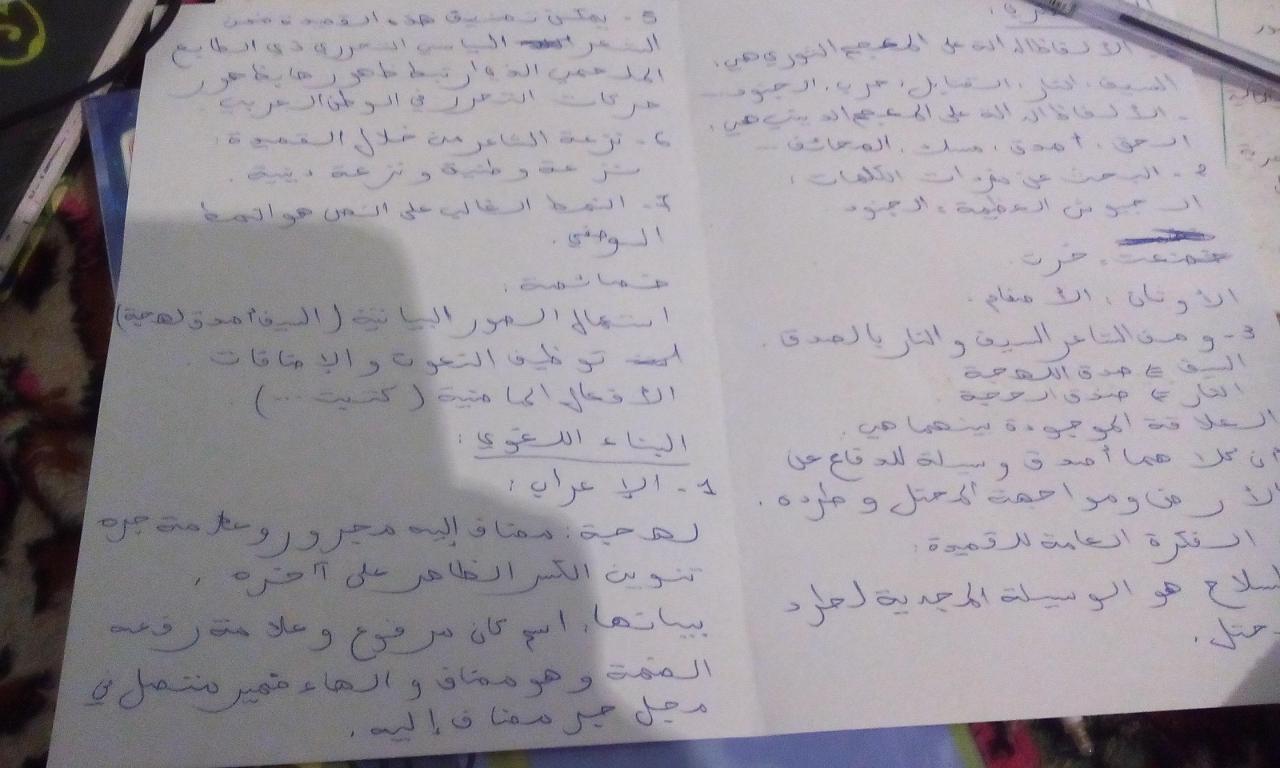 الألفاظ الدالة على المعجم الثوري هي:
السيف، النار، القنابل، حرب، الجنود...
- الألفاظ الدالة على المعجم الديني هي:
الحق، أصدق، الصحائف...
2- البحث عن مفردات الكلمات:
الجيوش العظيمة = الجنود
خرت
الأوثان = الأصنام.
3- وصف الشاعر السيف والنار بالصدق.
السيف ⇐ صدق اللهجة
النار ⇐ صدق الحجة
العلاقة الموجودة بينهما هي.
أن كلاهما أصدق وسيلة للدفاع على
الأرض ومواجهة المحتل وطرده.
الفكرة العامة للقصيدة:
السلاح هو الوسيلة المجدية لطرد
5- يمكن تصنيف هذه القصيدة ضمن
الشعر السياسي التحرري ذي الطابع
الملحمي الذي ارتبط ظهورها بظهور
حركات التحرر في الوطن العربي.
6- نزعة الشاعر من خلال القصيدة:
نزعة وطنية ونزعة دينية.
7- النمط الغالب على النص هو النمط
الوصفي.
خصائصه:
استعمال الصور البيانية (السيف أصدق لهجة)
توظيف النعوت والإضافات.
الأفعال الماضية (كتبت...).
البناء اللغوي:
1- الإعراب:
لهجة: مضاف إليه مجرور وعلامة جره
تنوين الكسر الظاهر على آخره.
بيباتها: اسم كان مرفوع وعلامة رفعه
الضمة وهو مضاف والهاء ضمير متصل في
محل جر مضاف إليه.